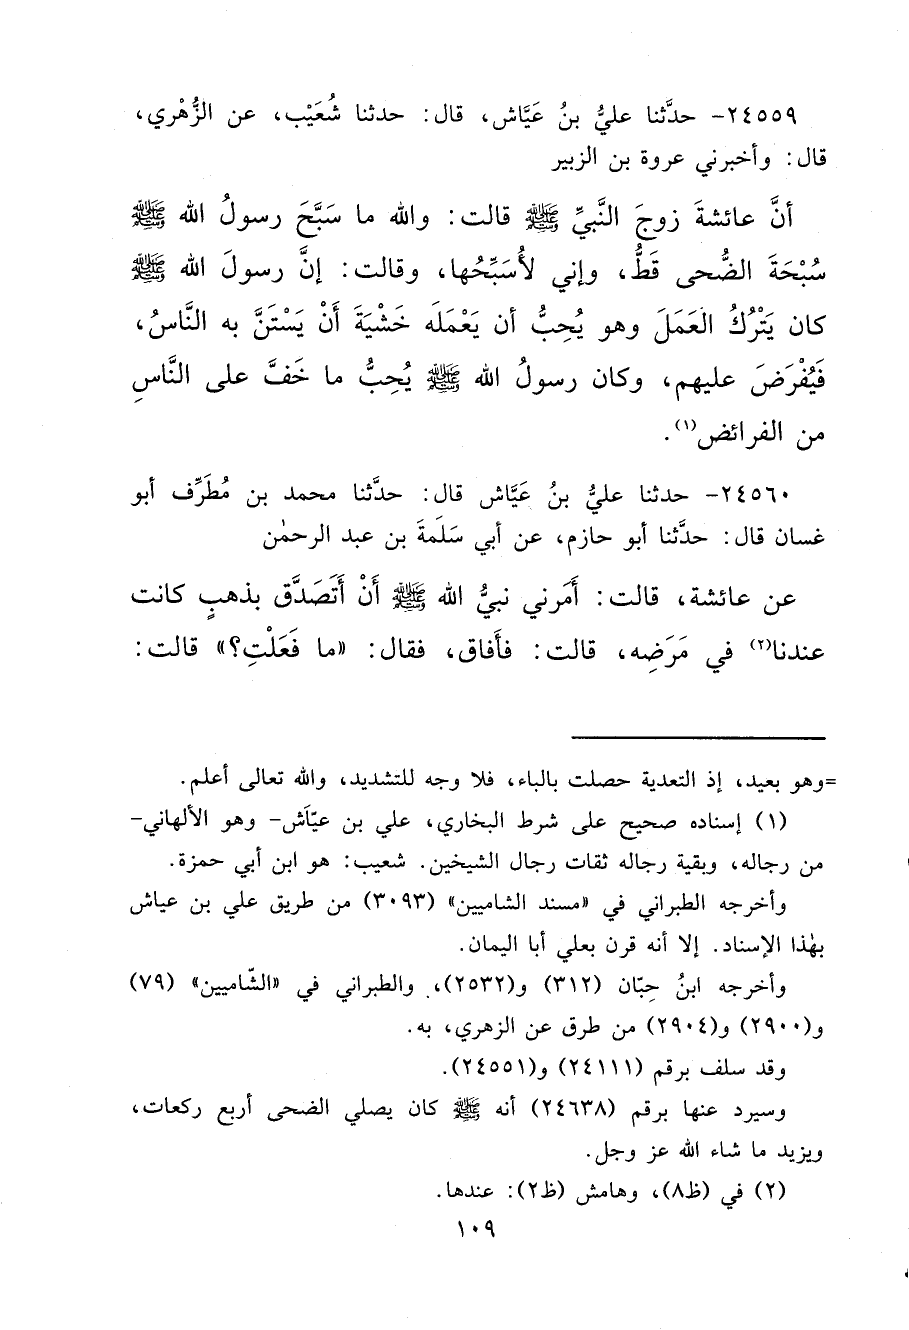 ٢٤٥٥٩- حدَّثنا عليُّ بنُ عَيَّاش، قال: حدثنا شُعَيْب، عن الزُّهْري،
قال: وأخبرني عروة بن الزبير
أنَّ عائشةَ زوجَ النَّبيِّ ﷺ قالت: والله ما سَبَّحَ رسولُ الله ﷺ
سُبْحَةَ الضُّحى قَطُّ، وإني لأُسَبِّحُها، وقالت: إنَّ رسولَ الله ﷺ
كان يَتْرُكُ العَمَلَ وهو يُحِبُّ أن يَعْمَلَه خَشْيَةَ أَنْ يَسْتَنَّ به النَّاسُ،
فَيُفْرَضَ عليهم، وكان رسولُ الله ﷺ يُحِبُّ ما خَفَّ على النَّاسِ
من الفرائض(١).
٢٤٥٦٠- حدثنا عليُّ بنُ عَيَّاش قال: حدَّثنا محمد بن مُطَرِّف أبو
غسان قال: حدَّثنا أبو حازم، عن أبي سَلَمةَ بن عبد الرحمٰن
عن عائشة، قالت: أَمَرني نبيُّ الله ﷺ أَنْ أَتَصَدَّق بذهبٍ كانت
عندنا(٢) في مَرَضِه، قالت: فأَفاق، فقال: «ما فَعَلْتِ؟» قالت:
=وهو بعيد، إذ التعدية حصلت بالباء، فلا وجه للتشديد، والله تعالى أعلم.
(١) إسناده صحيح على شرط البخاري، علي بن عيّاش- وهو الألهاني-
من رجاله، وبقية رجاله ثقات رجال الشيخين. شعيب: هو ابن أبي حمزة.
وأخرجه الطبراني في «مسند الشاميين» (٣٠٩٣) من طريق علي بن عياش
بهٰذا الإسناد. إلا أنه قرن بعلي أبا اليمان.
وأخرجه ابنُ حِبّان (٣١٢) و(٢٥٣٢)، والطبراني في «الشّاميين» (٧٩)
و(٢٩٠٠) و(٢٩٠٤) من طرق عن الزهري، به.
وقد سلف برقم (٢٤١١١) و(٢٤٥٥١).
وسيرد عنها برقم (٢٤٦٣٨) أنه ﷺ كان يصلي الضحى أربع ركعات،
ويزيد ما شاء الله عز وجل.
(٢) في (ظ٨)، وهامش (ظ٢): عندها.
١٠٩